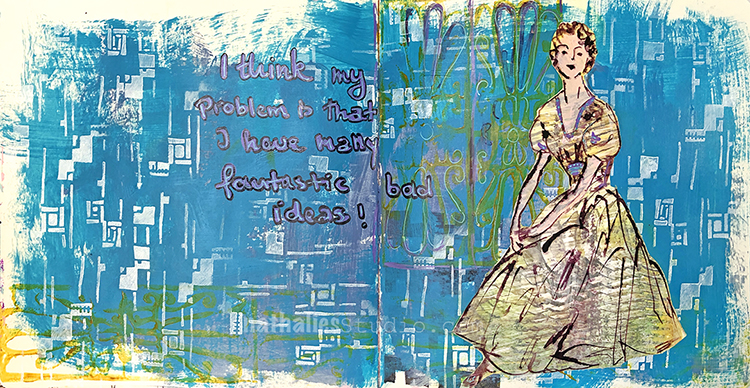 I think my
Problem is that
I have many
fantastic bad
ideas!
nathaliesstudio.com